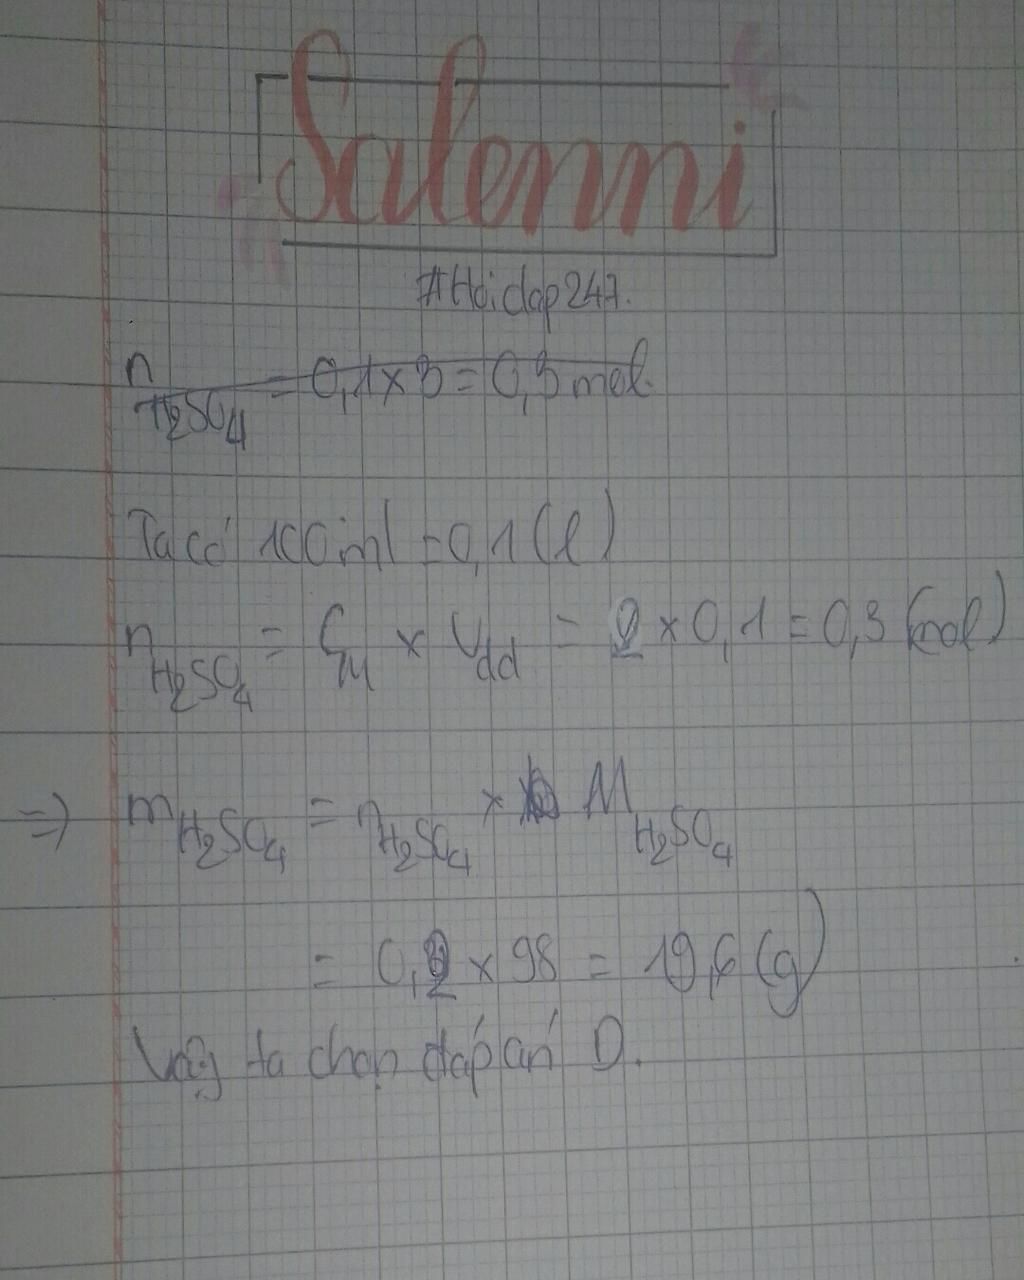 Salenni
#Hoidap247.
n H₂SO₄ = 0,1 x 3 = 0,3 mol.
Ta có 100 ml = 0,1 (l)
n H₂SO₄ = C_M x V_dd = 2 x 0,1 = 0,3 (mol)
=> m H₂SO₄ = n H₂SO₄ x M H₂SO₄
= 0,2 x 98 = 19,6 (g)
Vậy ta chọn đáp án D.